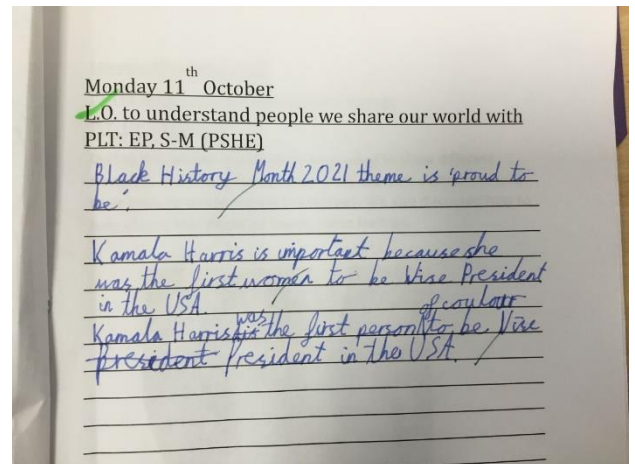 Monday 11th October
L.O. to understand people we share our world with
PLT: EP, S-M (PSHE)
Black History Month 2021 theme is 'proud to
be'.
Kamala Harris is important because she
was the first women to be Wise President
in the USA.
Kamala Harris is was the first person of coulour to be Vise
president President in the USA.